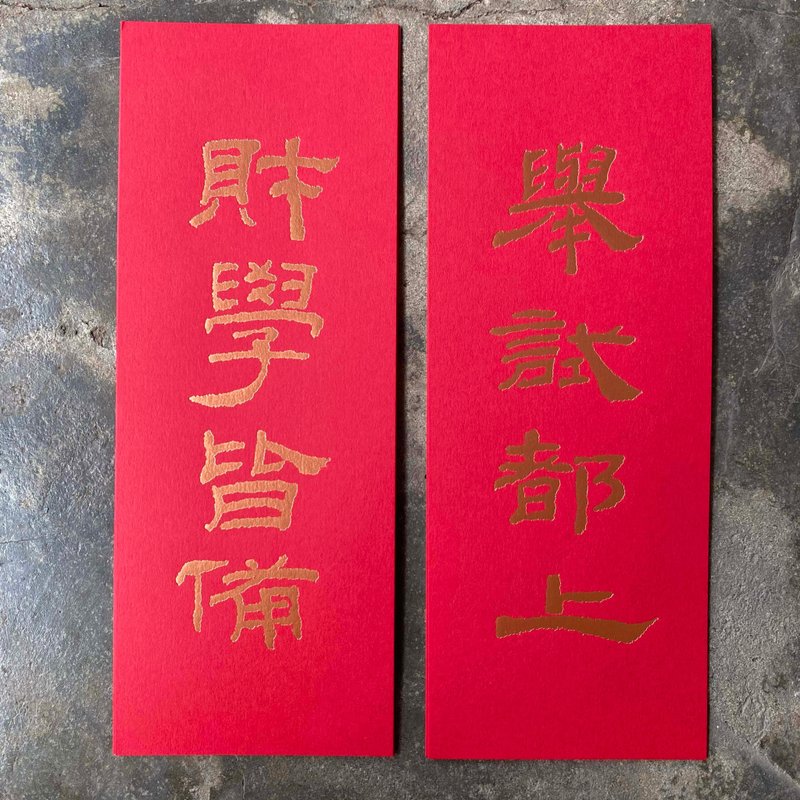 舉試都上
財學皆備